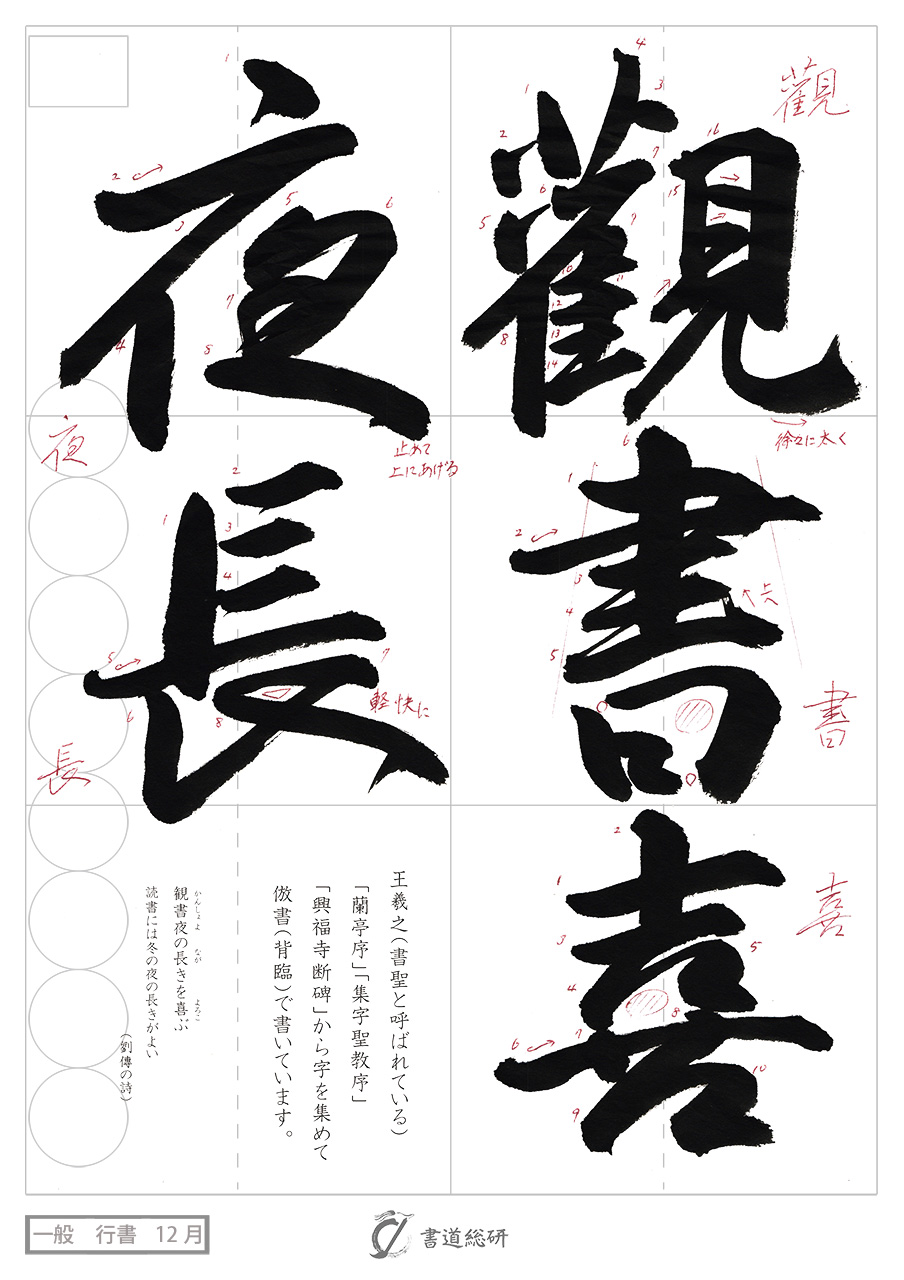 觀書喜
夜長
觀
書
喜
夜
長
徐々に太く
止めて
上にあげる
軽快に
王羲之(書聖と呼ばれている)
「蘭亭序」「集字聖教序」
「興福寺断碑」から字を集めて
倣書(背臨)で書いています。
観書夜の長きを喜ぶ
かんしょよ なが よろこ
読書には冬の夜の長さがよい
(劉傳の詩)
一般 行書 12月
書道総研